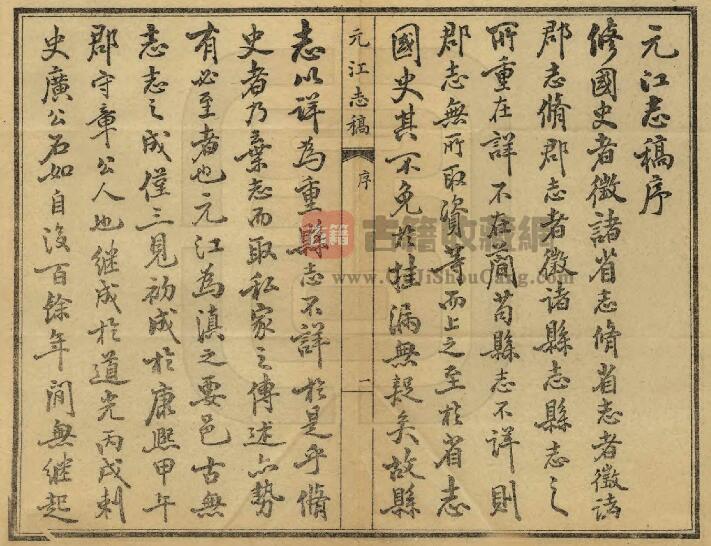 元江志稿序
修國史者徵諸省志脩省志者徵諸
郡志脩郡志者徵諸縣志縣志之
所重在詳不在簡苟縣志不詳則
郡志無所取資等而上之至於省志
國史其不免於挂漏無疑矣故縣
元江志稿
序
一
志以詳為重縣志不詳於是乎脩
史者乃棄志而取私家之傳述亦勢
有必至者也元江為滇之要邑古無
志志之成僅三見初成於康熙甲午
郡守章公人也継成於道光丙戌刺
史廣公石如自後百餘年間無継起
古籍
古籍收藏網
www.GuJiShouCang.com